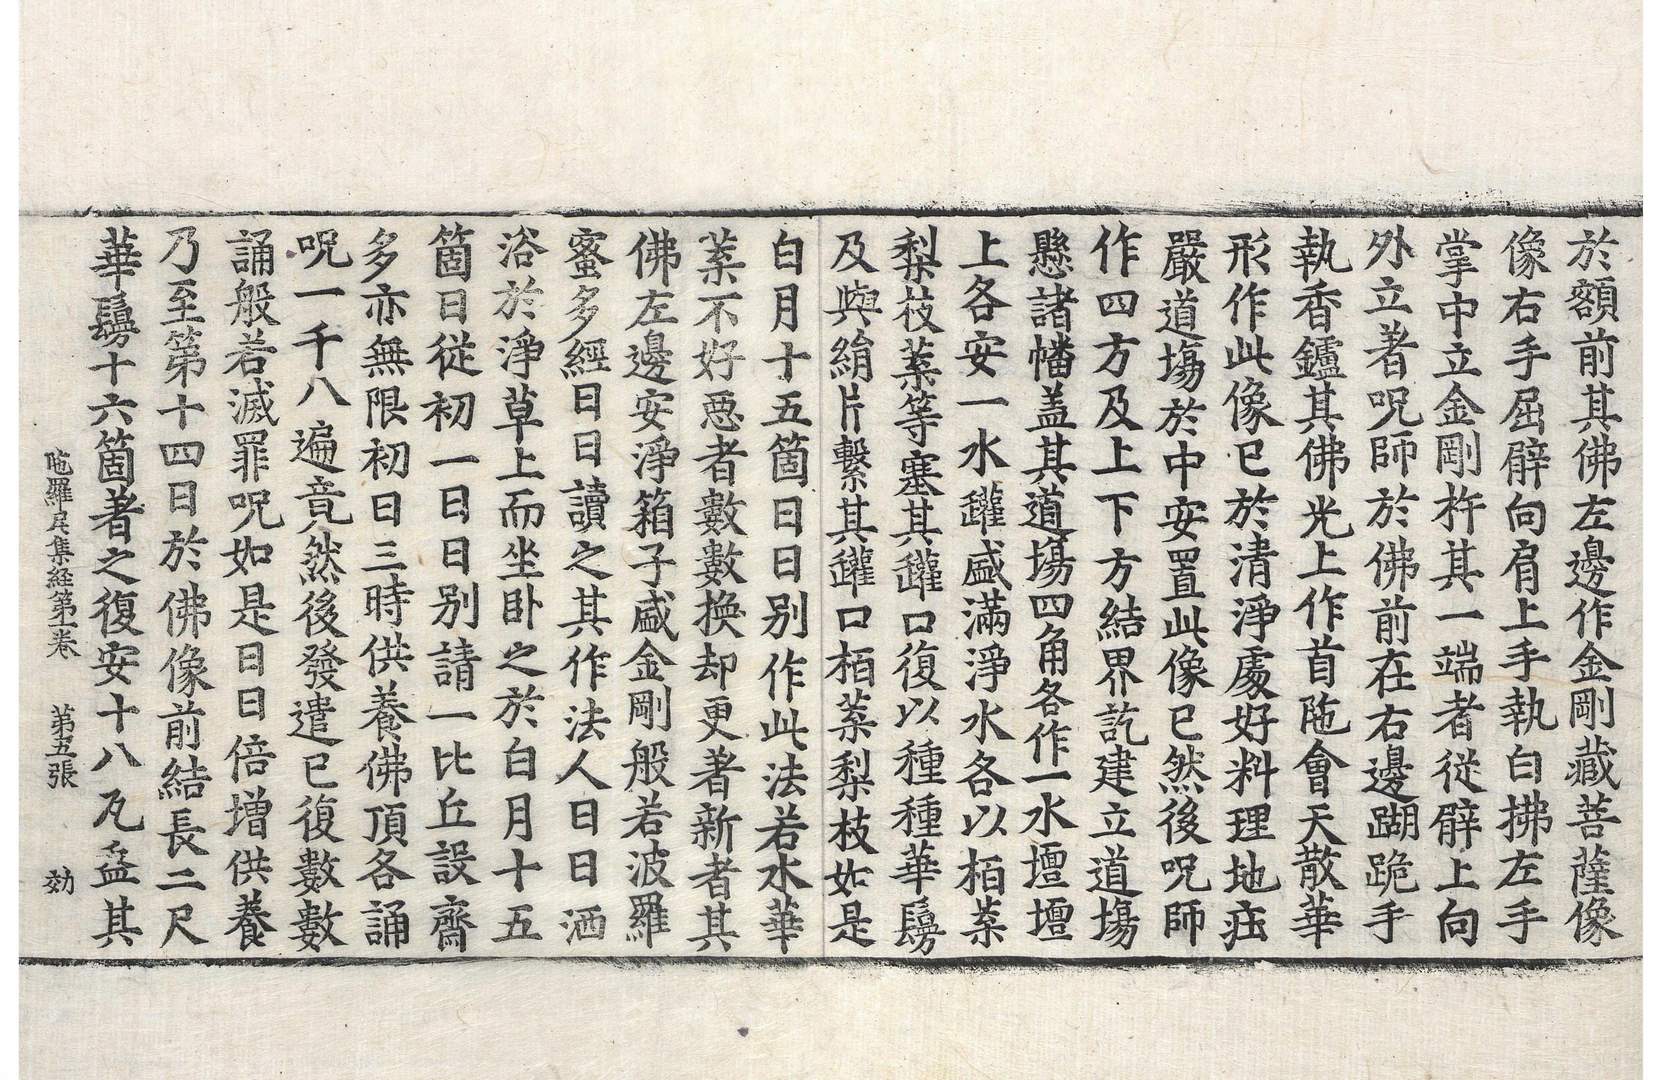 於額前其佛左邊作金剛藏菩薩像
像右手屈臂向肩上手執白拂左手
掌中立金剛杵其一端者從臂上向
外立著呪師於佛前在右邊蹋跪手
執香鑪其佛光上作首陁會天散華
形作此像已於清淨處好料理地莊
嚴道場於中安置此像已然後呪師
作四方及上下方結界訖建立道場
懸諸幡盖其道場四角各作一水壇壇
上各安一水罐盛滿淨水各以栢葉
梨枝葉等塞其罐口復以種種華鬘
及與絹片繫其罐口栢葉梨枝如是
白月十五箇日日別作此法若水華
葉不好惡者數數換却更著新者其
佛左邊安淨箱子盛金剛般若波羅
蜜多經日日讀之其作法人日日洒
浴於淨草上而坐卧之於白月十五
箇日從初一日日別請一比丘設齋
多亦無限初日三時供養佛頂各誦
呪一千八遍竟然後發遣已復數數
誦般若滅罪呪如是日日倍增供養
乃至第十四日於佛像前結長二尺
華鬘十六箇著之復安十八瓦盆其
陁羅尼集経第一卷　第五張　効